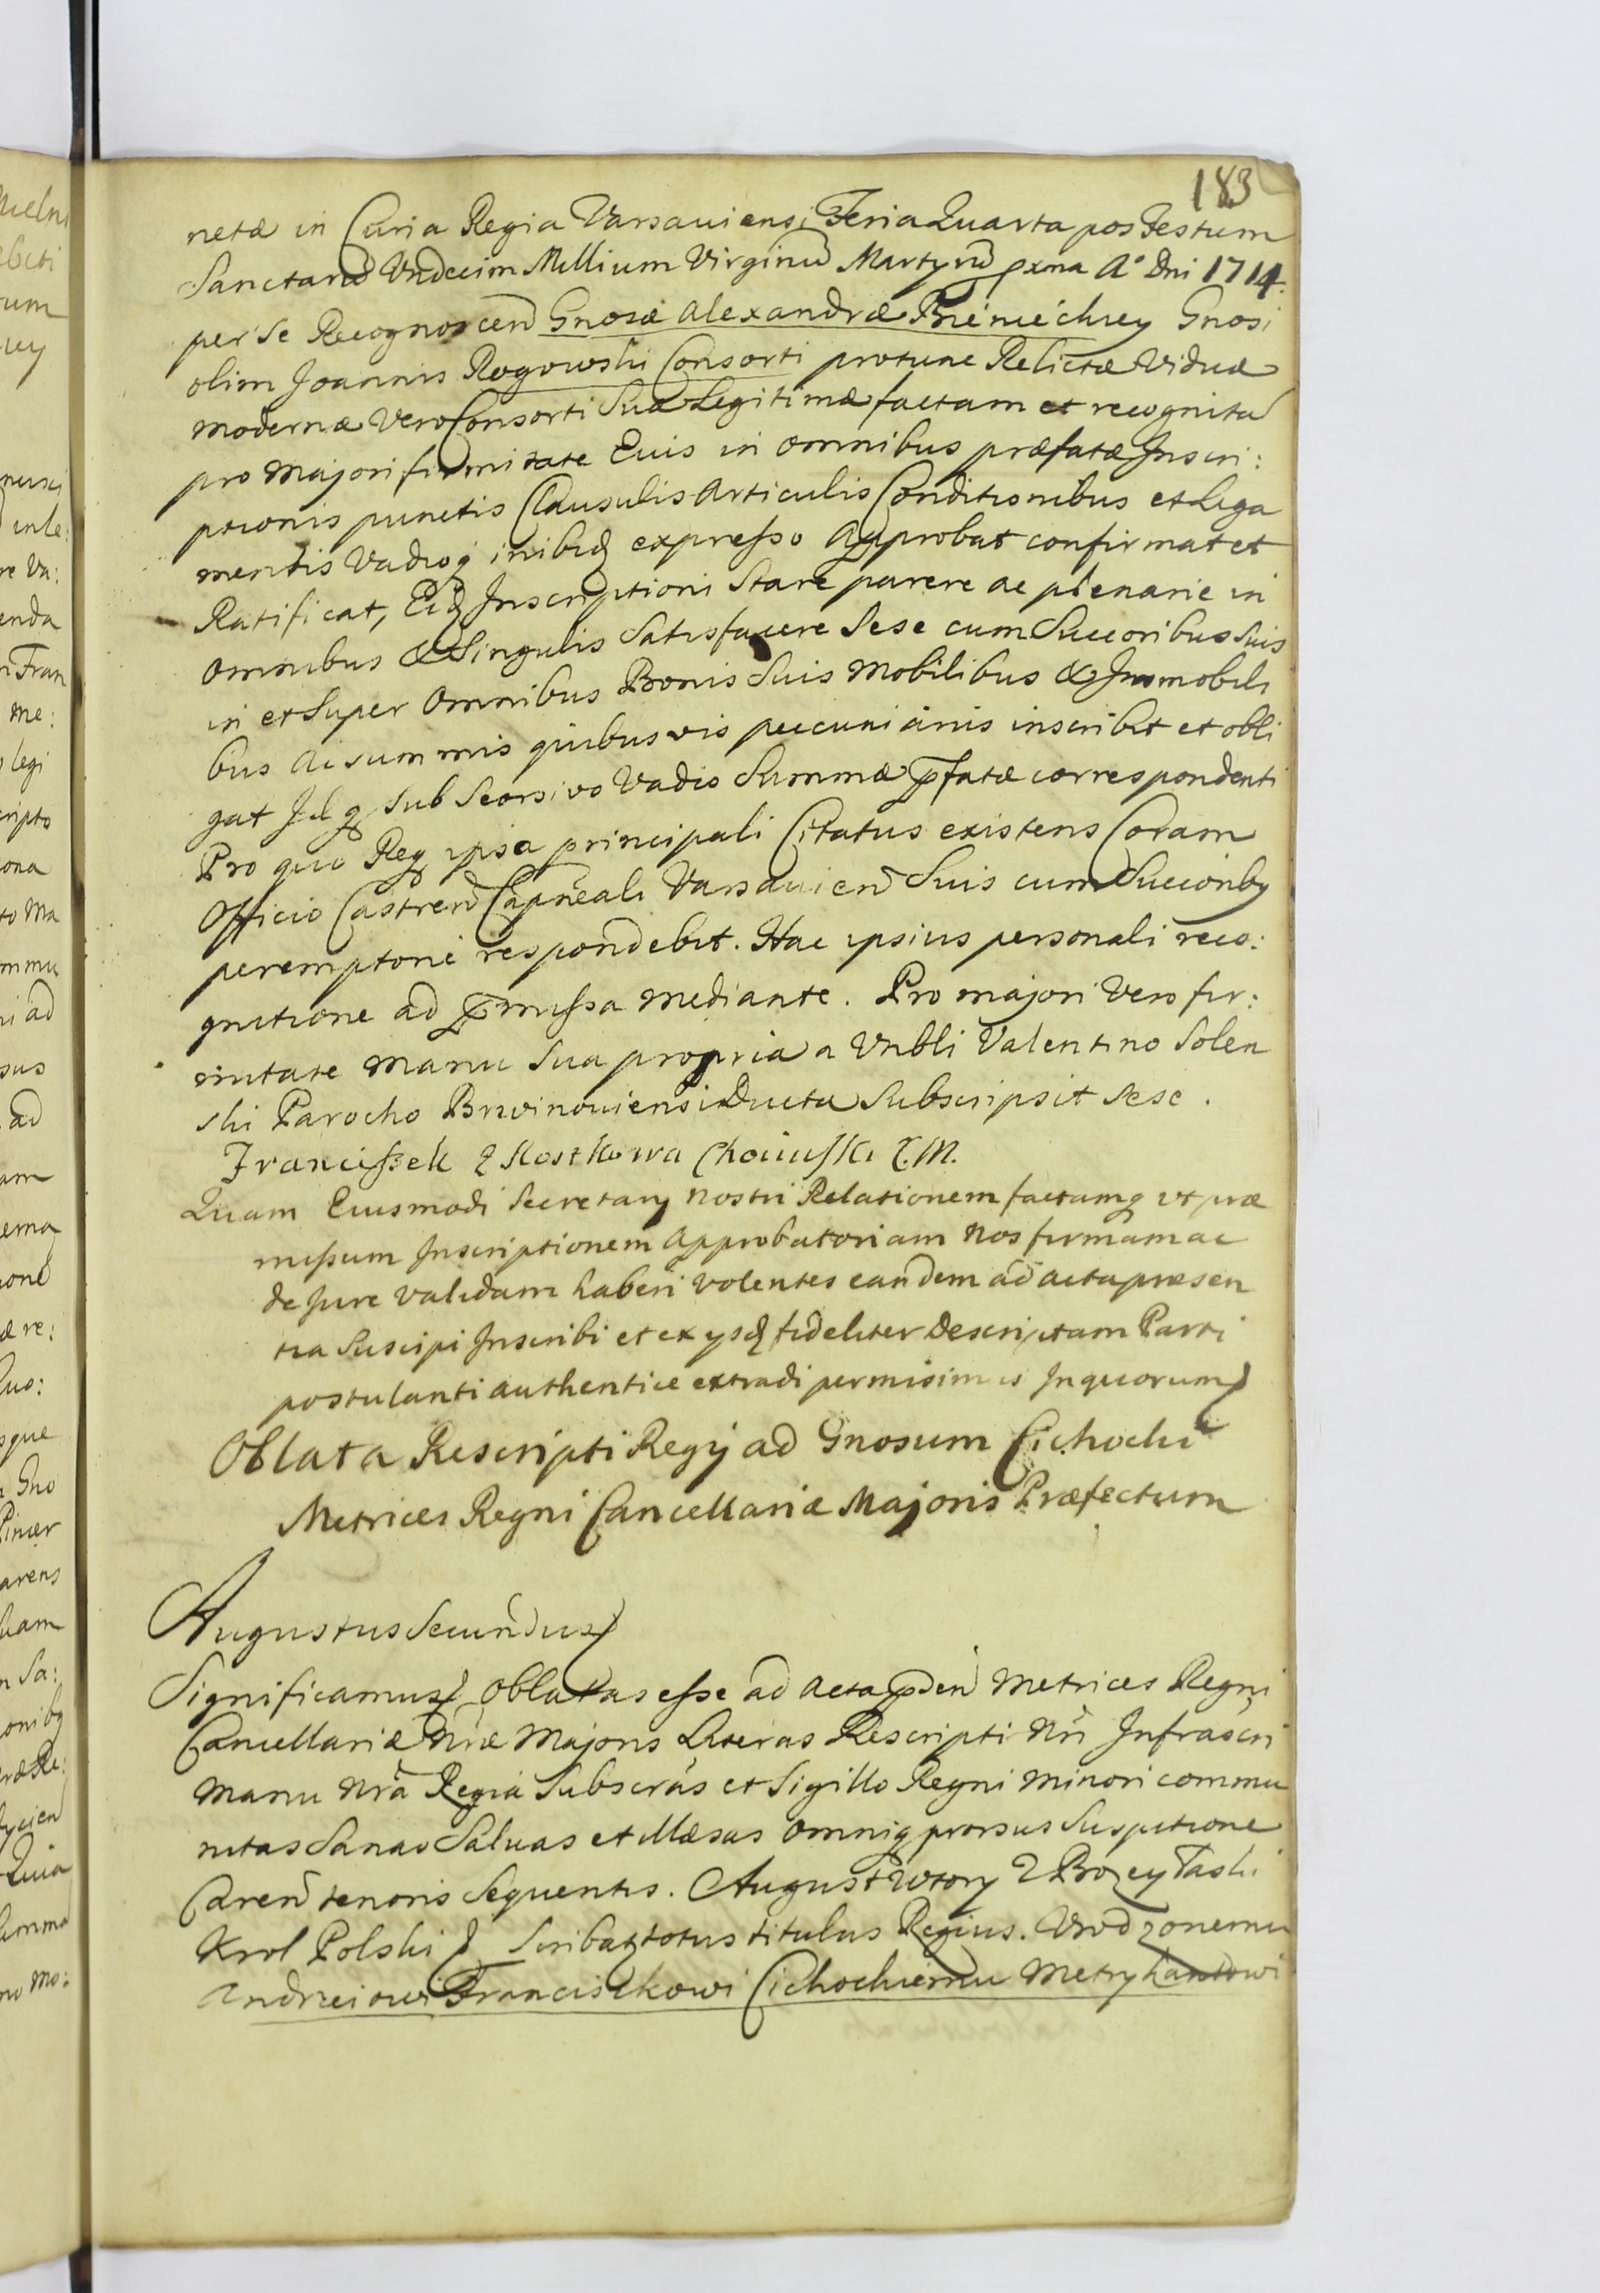 183
netæ in Curia Regia Varsauiensi Feria Quarta pos Festum
Sanctarū Vndecim Millium Virginū Martyrū pxma A° Dni 1714.
per Se Recognoscen Gnosæ Alexandræ Bieniechrey Gnosi
olim Joannis Rogowski Consorti protunc Relictæ Viduæ
modernæ Vero Consorti Suæ Legitimæ factam et recognitā
pro majori firmitate Eius in omnibus præfatæ Inscri:
ptionis punctis Clausulis Articulis Conditionibus et Liga
mentis Vadioq inibiq expresso Approbat confirmat et
Ratificat, Eiq Inscriptioni Stare parere ac plenarie in
omnibus & Singulis Satisfacere Sese cum Succoribus Suis
in et Super Omnibus Bonis Suis Mobilibus & Immobili
bus Ac summis quibusvis pecuniariis inscribit et obli
gat Idq Sub Seorsivo Vadio Summæ pfatæ correspondenti
Pro quo Req ipsa principali Citatus existens Coram
Officio Castren Capneali Varsauien Suis cum Succoribq
peremptorie respondebit. Hac ipsius personali reco:
gnitione ad pmissa mediante. Pro majori Vero fir:
mitate manu Sua propria a Vnbli Valentino Solen
ski Parocho Brwinouiensi Ducta Subscripsit Sese.
Franciszek z Kostkowa Choiński T.M.
Quam Eiusmodi Secretary nostri Relationem factamq vt præ
missum Inscriptionem Approbatoriam Nos firmam ac
de Jure Validam haberi Volentes eandem ad acta præsen
tia Suscipi Inscribi et ex ysq fideliter Descriptam Parti
postulanti authentice extradi permisimus In quorum
Oblata Rescripti Regij ad Gnosum Cichocki
Metrices Regni Cancellariæ Majoris Præfectum
Augustus Secundus
Significamus Oblatas esse ad Acta pden Metrices Regni
Cancellariæ Nræ Majoris Literas Rescripti Nri Infrascri
Manu Nra Regia Subscras et Sigillo Regni Minori commu
nitas Sanas Saluas et illæsas Omniq prorsus Suspitione
Caren tenoris Sequentis. August Wtory z Bozey Łaski
Krol Polski Scribatq totus titulus Regius. Vrodzonemu
Andrzeiowi Franciszkowi Cichockiemu Metrykantowi